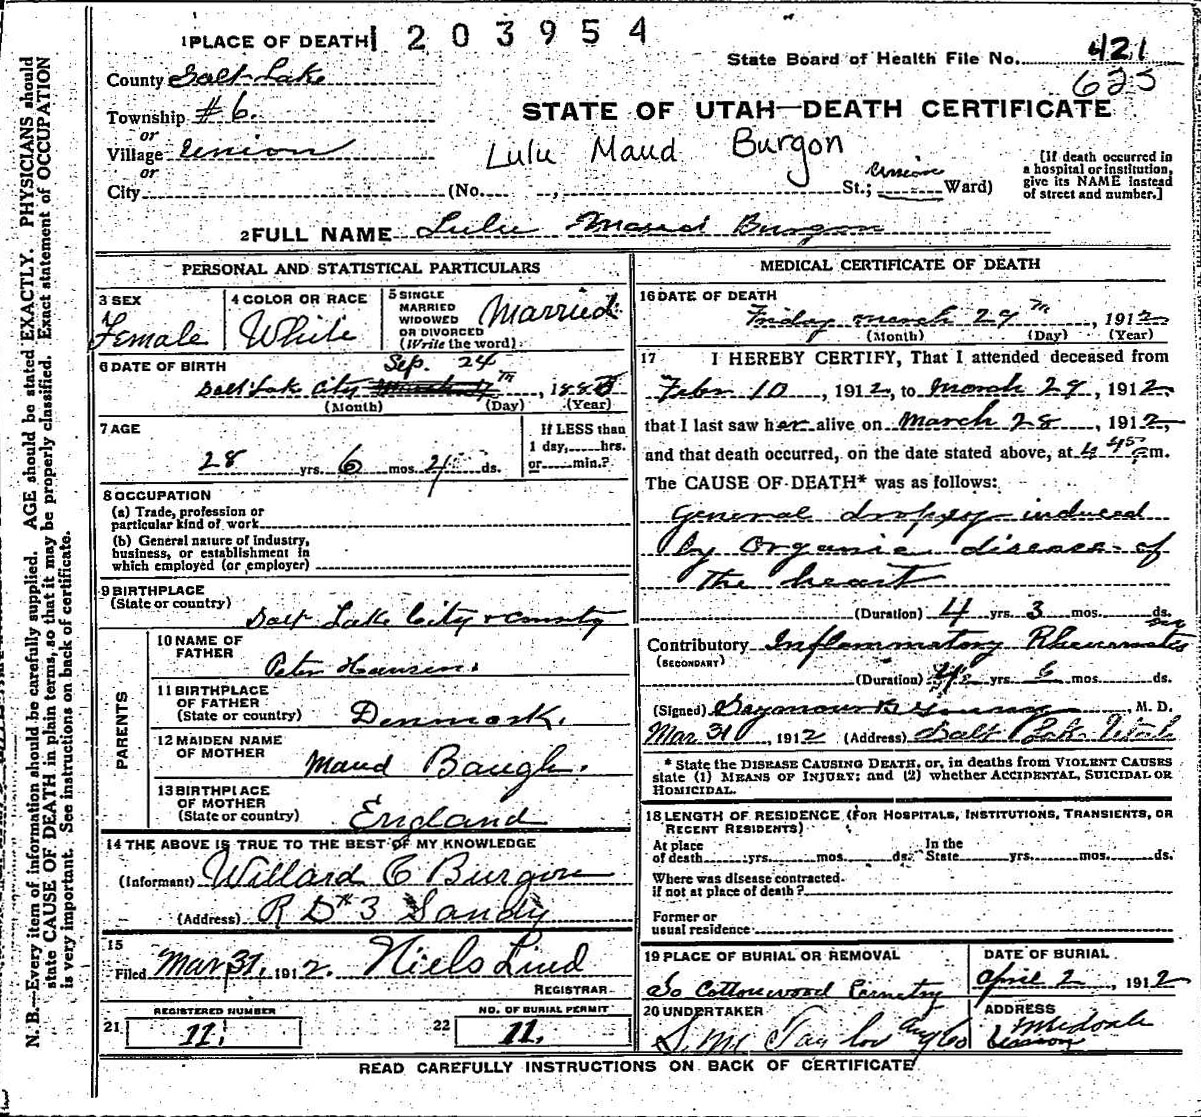 1 PLACE OF DEATH 1 2 0 3 9 5 4
State Board of Health File No. 421
625
County Salt Lake
Township #6.
or
Village Union
or
City
STATE OF UTAH—DEATH CERTIFICATE
Lulu Maud Burgon
(No. , St.; Union Ward)
[If death occurred in a hospital or institution, give its NAME instead of street and number.]
2 FULL NAME Lulu Maud Burgon
PERSONAL AND STATISTICAL PARTICULARS
3 SEX
Female
4 COLOR OR RACE
White
5 SINGLE MARRIED WIDOWED OR DIVORCED (Write the word)
Married
6 DATE OF BIRTH
Sep. 24
Salt Lake City TH, 188
(Month) (Day) (Year)
7 AGE
28 yrs. 6 mos. 4 ds.
If LESS than 1 day, hrs. or min.?
8 OCCUPATION
(a) Trade, profession or particular kind of work
(b) General nature of Industry, business, or establishment in which employed (or employer)
9 BIRTHPLACE
(State or country)
Salt Lake City & County
PARENTS
10 NAME OF FATHER
Peter Hansen.
11 BIRTHPLACE OF FATHER
(State or country)
Denmark.
12 MAIDEN NAME OF MOTHER
Maud Baugh.
13 BIRTHPLACE OF MOTHER
(State or country)
England
14 THE ABOVE IS TRUE TO THE BEST OF MY KNOWLEDGE
(Informant) Willard C Burgon
(Address) R D #3 Sandy
15
Filed Mar 31, 1912. Niels Lind
REGISTRAR
21 REGISTERED NUMBER
11.
22 NO. OF BURIAL PERMIT
11.
MEDICAL CERTIFICATE OF DEATH
16 DATE OF DEATH
Friday march 29 th, 1912
(Month) (Day) (Year)
17 I HEREBY CERTIFY, That I attended deceased from
Febr 10, 1912, to March 29, 1912,
that I last saw her alive on March 28, 1912,
and that death occurred, on the date stated above, at 4 45 m.
The CAUSE OF DEATH* was as follows:
General dropsy induced
by Organic disease of
the heart
(Duration) 4 yrs. 3 mos. ds.
Contributory Inflammatory Rheumatism
(SECONDARY)
(Duration) yrs. 6 mos. ds.
(Signed) Seymour B Young, M. D.
Mar 31, 1912 (Address) Salt Lake Utah
* State the DISEASE CAUSING DEATH, or, in deaths from VIOLENT CAUSES
state (1) MEANS OF INJURY; and (2) whether ACCIDENTAL, SUICIDAL OR
HOMICIDAL.
18 LENGTH OF RESIDENCE (FOR HOSPITALS, INSTITUTIONS, TRANSIENTS, OR
RECENT RESIDENTS)
At place of death yrs. mos. ds. In the State yrs. mos. ds.
Where was disease contracted.
if not at place of death?
Former or
usual residence
19 PLACE OF BURIAL OR REMOVAL
So Cottonwood Cemetry
DATE OF BURIAL
April 2, 1912
20 UNDERTAKER
S. M. Taylor
ADDRESS
Midvale
READ CAREFULLY INSTRUCTIONS ON BACK OF CERTIFICATE
N. B.—Every item of information should be carefully supplied. AGE should be stated EXACTLY. PHYSICIANS should
state CAUSE OF DEATH in plain terms, so that it may be properly classified. Exact statement of OCCUPATION
is very important. See instructions on back of certificate.